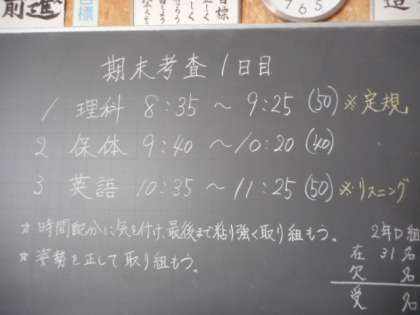 前進
目標
期末考査 1日目
1 理科 8:35 〜 9:25 (50) ※定規
2 保体 9:40 〜 10:20 (40)
3 英語 10:35 〜 11:25 (50) ※リスニング
※ 時間配分に気を付け、最後まで粘り強く取り組もう。
※ 姿勢を正して取り組もう。
2年D組
在 31名
欠 名
受 名